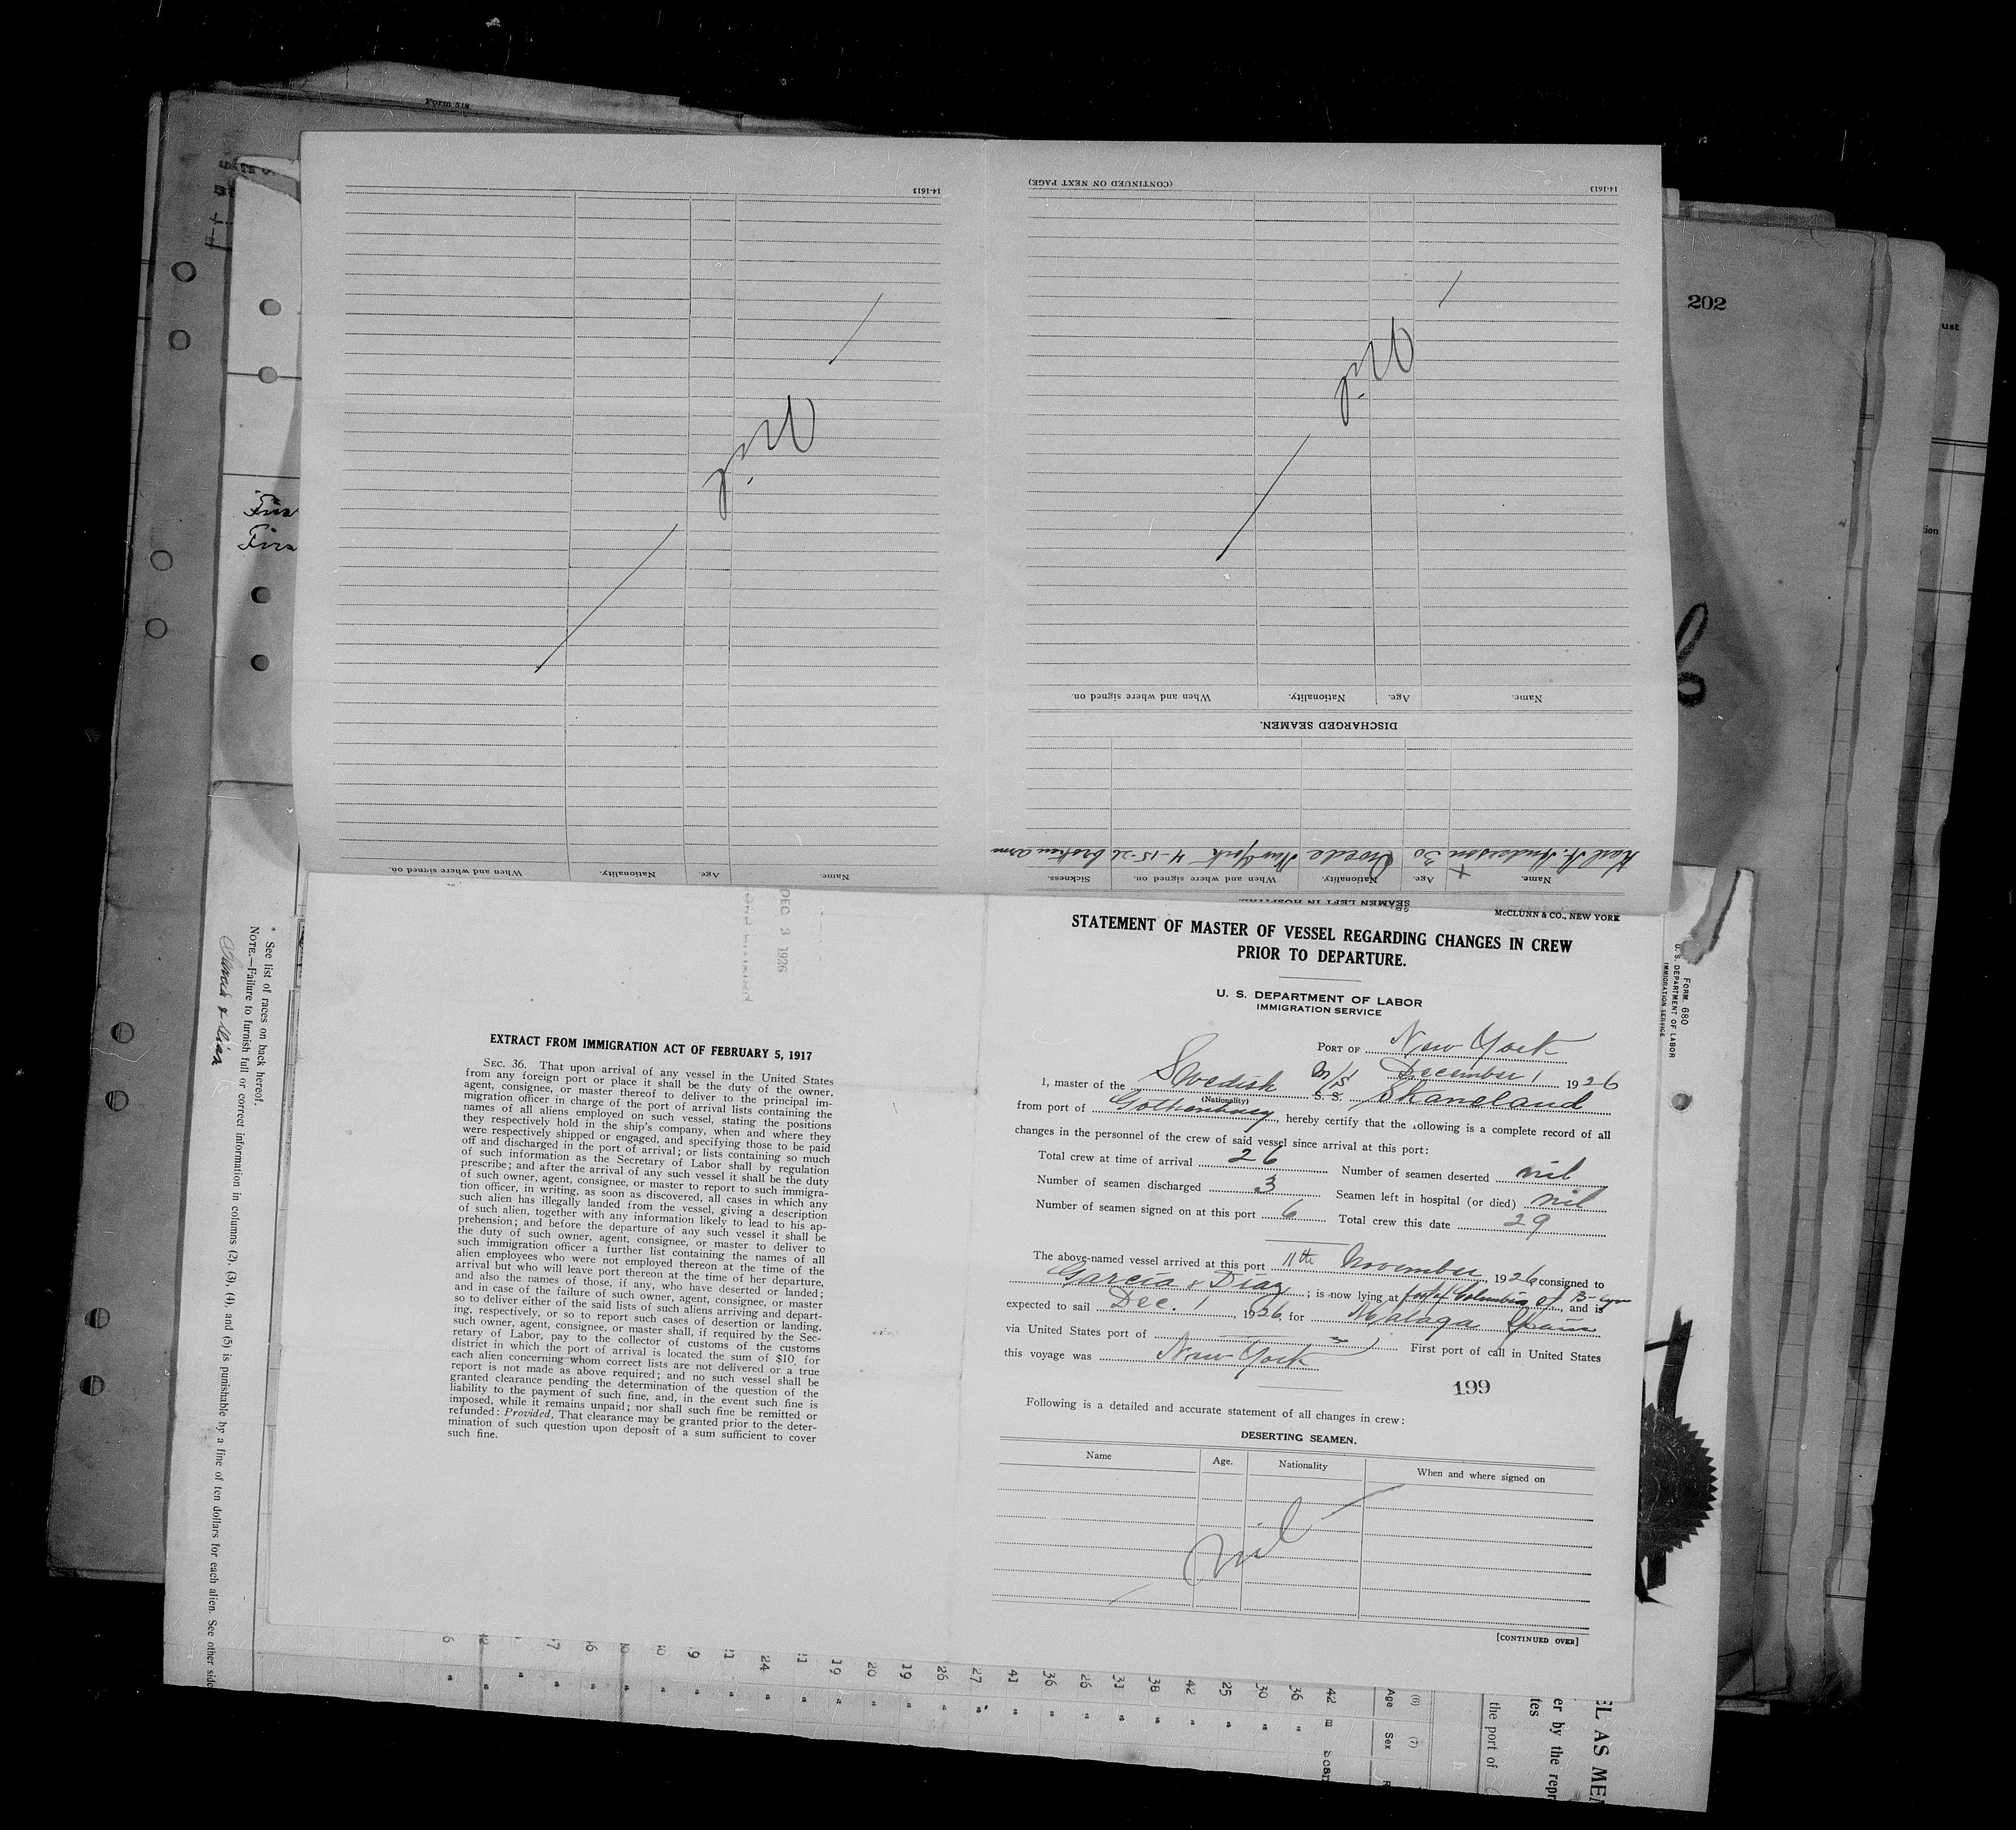 Form 518
14-1613
(CONTINUED ON NEXT PAGE)
14-1613
202
ust
tion
nil
nil
Name.
Age.
Nationality.
When and where signed on.
DISCHARGED SEAMEN.
Karl A. Anderson 30 Swede New York 4-15-26 broken arm
Name.
Age.
Nationality.
When and where signed on.
Sickness.
SEAMEN LEFT IN HOSPITAL.
Name.
Age.
Nationality.
When and where signed on.
DEC 3 1926
McCLUNN & CO., NEW YORK
STATEMENT OF MASTER OF VESSEL REGARDING CHANGES IN CREW
PRIOR TO DEPARTURE.
U. S. DEPARTMENT OF LABOR
IMMIGRATION SERVICE
PORT OF New York
December 1 1926
I, master of the Swedish M/S S. S. Skaneland
(Nationality)
from port of Gothenburg, hereby certify that the following is a complete record of all
changes in the personnel of the crew of said vessel since arrival at this port:
Total crew at time of arrival 26 Number of seamen deserted nil
Number of seamen discharged 3 Seamen left in hospital (or died) nil
Number of seamen signed on at this port 6 Total crew this date 29
The above-named vessel arrived at this port 11th November, 1926 consigned to
Garcia & Diaz; is now lying at foot of Columbia st B-lyn, and is
expected to sail Dec. 1, 1926, for Malaga Spain
via United States port of First port of call in United States
this voyage was New York
199
Following is a detailed and accurate statement of all changes in crew:
DESERTING SEAMEN.
Name Age. Nationality When and where signed on
nil
[CONTINUED OVER]
EXTRACT FROM IMMIGRATION ACT OF FEBRUARY 5, 1917
SEC. 36. That upon arrival of any vessel in the United States
from any foreign port or place it shall be the duty of the owner,
agent, consignee, or master thereof to deliver to the principal im-
migration officer in charge of the port of arrival lists containing the
names of all aliens employed on such vessel, stating the positions
they respectively hold in the ship's company, when and where they
were respectively shipped or engaged, and specifying those to be paid
off and discharged in the port of arrival; or lists containing so much
of such information as the Secretary of Labor shall by regulation
prescribe; and after the arrival of any such vessel it shall be the duty
of such owner, agent, consignee, or master to report to such immigra-
tion officer, in writing, as soon as discovered, all cases in which any
such alien has illegally landed from the vessel, giving a description
of such alien, together with any information likely to lead to his ap-
prehension; and before the departure of any such vessel it shall be
the duty of such owner, agent, consignee, or master to deliver to
such immigration officer a further list containing the names of all
alien employees who were not employed thereon at the time of the
arrival but who will leave port thereon at the time of her departure,
and also the names of those, if any, who have deserted or landed;
and in case of the failure of such owner, agent, consignee, or master
so to deliver either of the said lists of such aliens arriving and depart-
ing, respectively, or so to report such cases of desertion or landing,
such owner, agent, consignee, or master shall, if required by the Sec-
retary of Labor, pay to the collector of customs of the customs
district in which the port of arrival is located the sum of $10 for
each alien concerning whom correct lists are not delivered or a true
report is not made as above required; and no such vessel shall be
granted clearance pending the determination of the question of the
liability to the payment of such fine, and, in the event such fine is
imposed, while it remains unpaid; nor shall such fine be remitted or
refunded: Provided, That clearance may be granted prior to the deter-
mination of such question upon deposit of a sum sufficient to cover
such fine.
* See list of races on back hereof.
NOTE.—Failure to furnish full or correct information in columns (2), (3), (4), and (5) is punishable by a fine of ten dollars for each alien. See other side
FORM 680
U. S. DEPARTMENT OF LABOR
IMMIGRATION SERVICE
24
11
19
20
19
26
27
41
36
26
31
38
42
25
30
36
42 m Scan
Age Sex
(6) (7)
the port of
tes
er by the repr
EL AS MEM